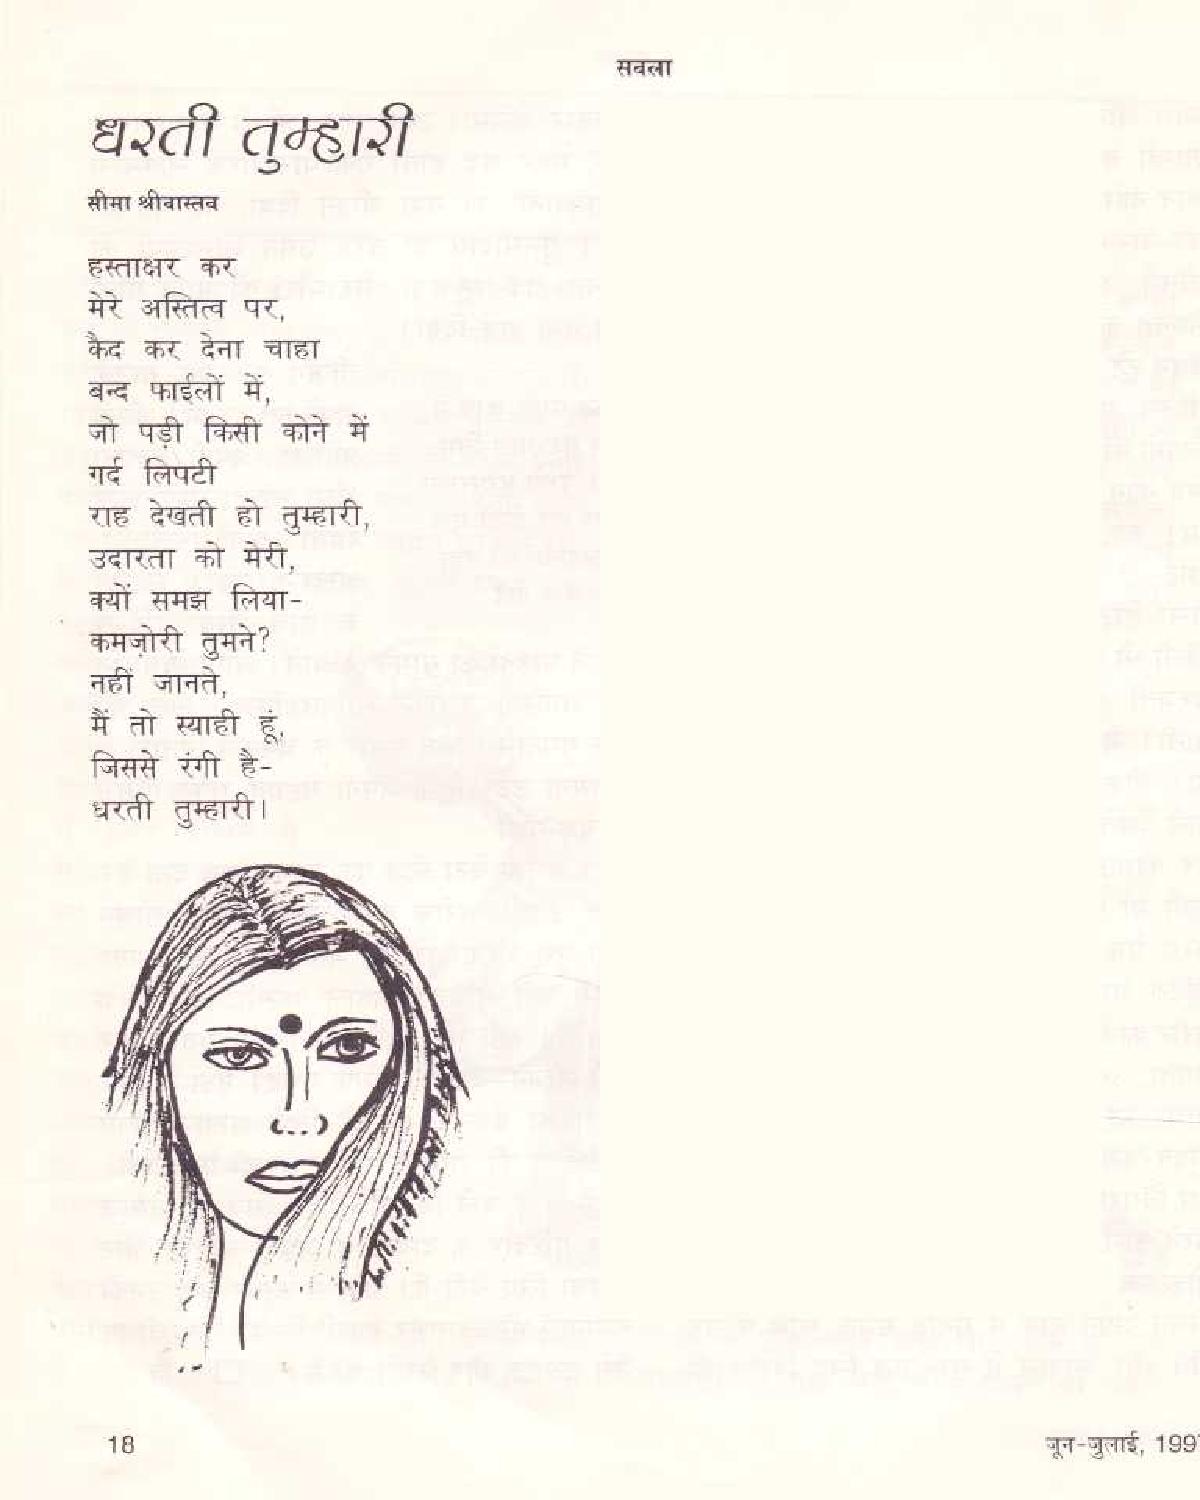 सबला
धरती तुम्हारी
सीमा श्रीवास्तव
हस्ताक्षर कर
मेरे अस्तित्व पर,
कैद कर देना चाहा
बन्द फाईलों में,
जो पड़ी किसी कोने में
गर्द लिपटी
राह देखती हो तुम्हारी,
उदारता को मेरी,
क्यों समझ लिया-
कमज़ोरी तुमने?
नहीं जानते,
मैं तो स्याही हूं,
जिससे रंगी है-
धरती तुम्हारी।
18
जून-जुलाई, 1997